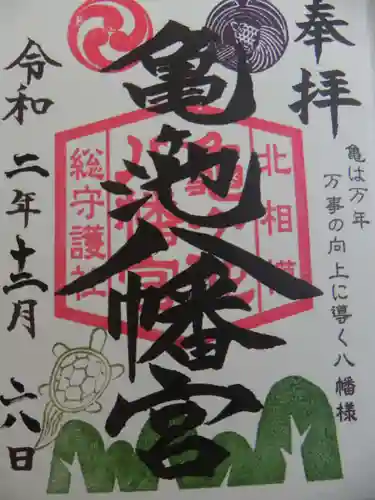 奉拝
亀は万年
万事の向上に導く八幡様
北相模
亀ヶ池
八幡宮
総守護社
亀池八幡宮
令和二年十二月六八日